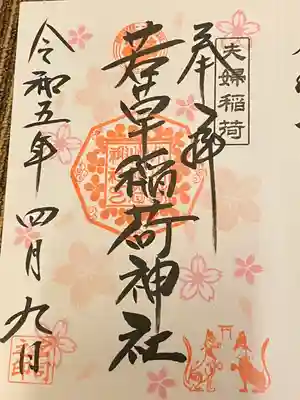 夫婦稲荷
奉拝
若草稲荷神社
令和五年 四月九日
福